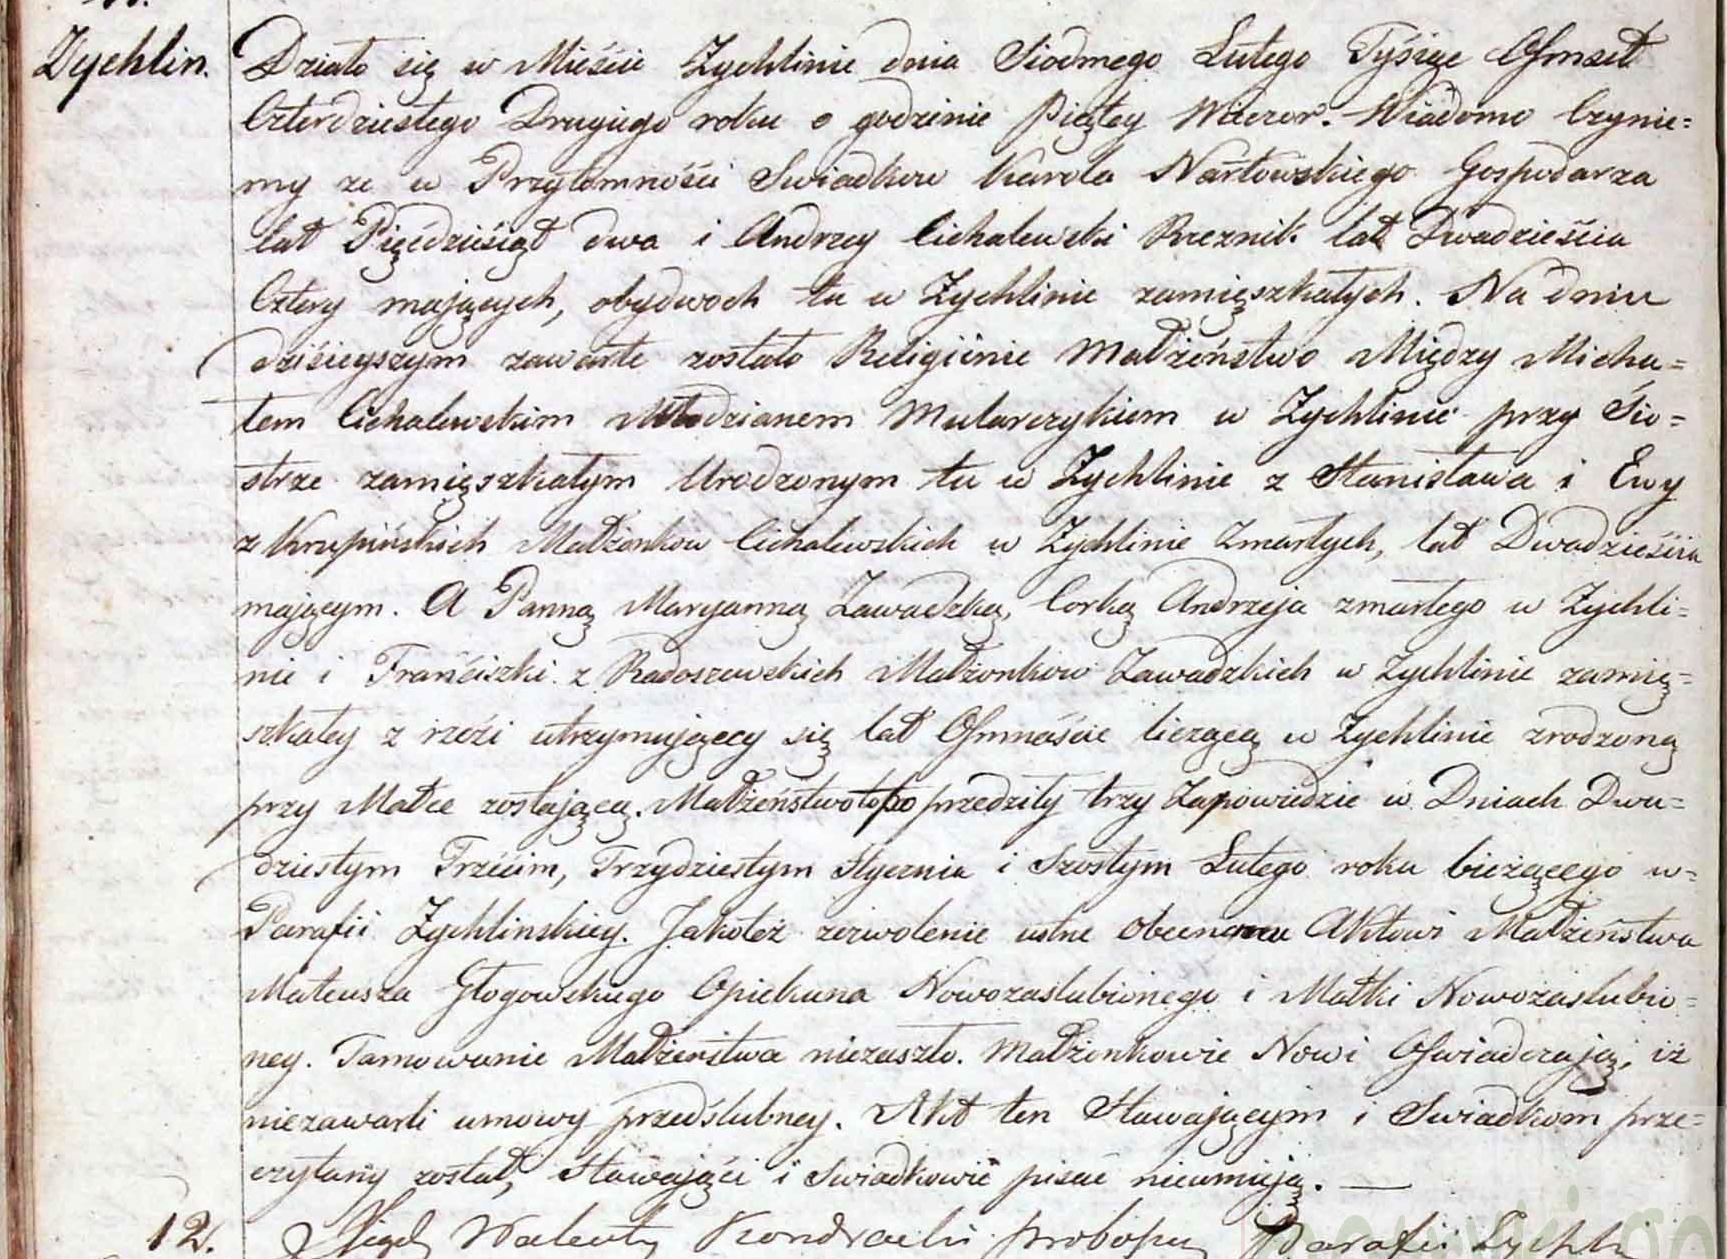 Zychlin.
Działo się w Mieście Zychlinie dnia Siodmego Lutego Tysiąc Osmset
Czterdziestego Drugiego roku o godzinie Piątey Wieczor. Wiadomo Czynie=
my ze w Przytomności Swiadkow Karola Nartowskiego Gospodarza
lat Pięćdziesiąt dwa i Andrzey Cichalewski Rzeznik lat Dwadzieścia
Cztery mających, obydwoch tu w Zychlinie zamięszkałych. Na dniu
dzisieyszym zawarte zostało Religiinie Małżeństwo Między Micha=
łem Cichalewskim Młodzianem Mularczykiem w Zychlinie przy Sio=
strze zamięszkałym Urodzonym tu w Zychlinie z Stanisława i Ewy
z Krupińskich Małżonkow Cichalewskich w Zychlinie Zmarłych, lat Dwadzieścia
mającym. A Panną Maryanną Zawadzką, Corką Andrzeja zmarłego w Zychli=
nie i Franciszki z Radoszewskich Małżonkow Zawadzkich w Zychlinie zamię=
szkałey z rzezi utrzymujący się lat Osmnaście liczącą w Zychlinie zrodzoną
przy Matce zostającą. Małżeństwo to poprzedziły trzy Zapowiedzie w Dniach Dwu=
dziestym Trzecim, Trzydziestym Stycznia i Szostym Lutego roku bieżącego w=
Parafii Zychlinskiey. Jakoteż zezwolenie ustne Aktowi Małżeństwa
Mateusza Głogowskiego Opiekuna Nowozaslubionego i Matki Nowozaslubio=
ney. Tamowanie Małżeństwa niezaszło. Małżonkowie Nowi Oswiadczają, iż
niezawarli umowy przedślubney. Akt ten Stawającym i Swiadkom prze=
czytany został, Stawający i Swiadkowie pisać nieumieją. —
12. Walenty Kondracki Proboszcz Parafii Zychli